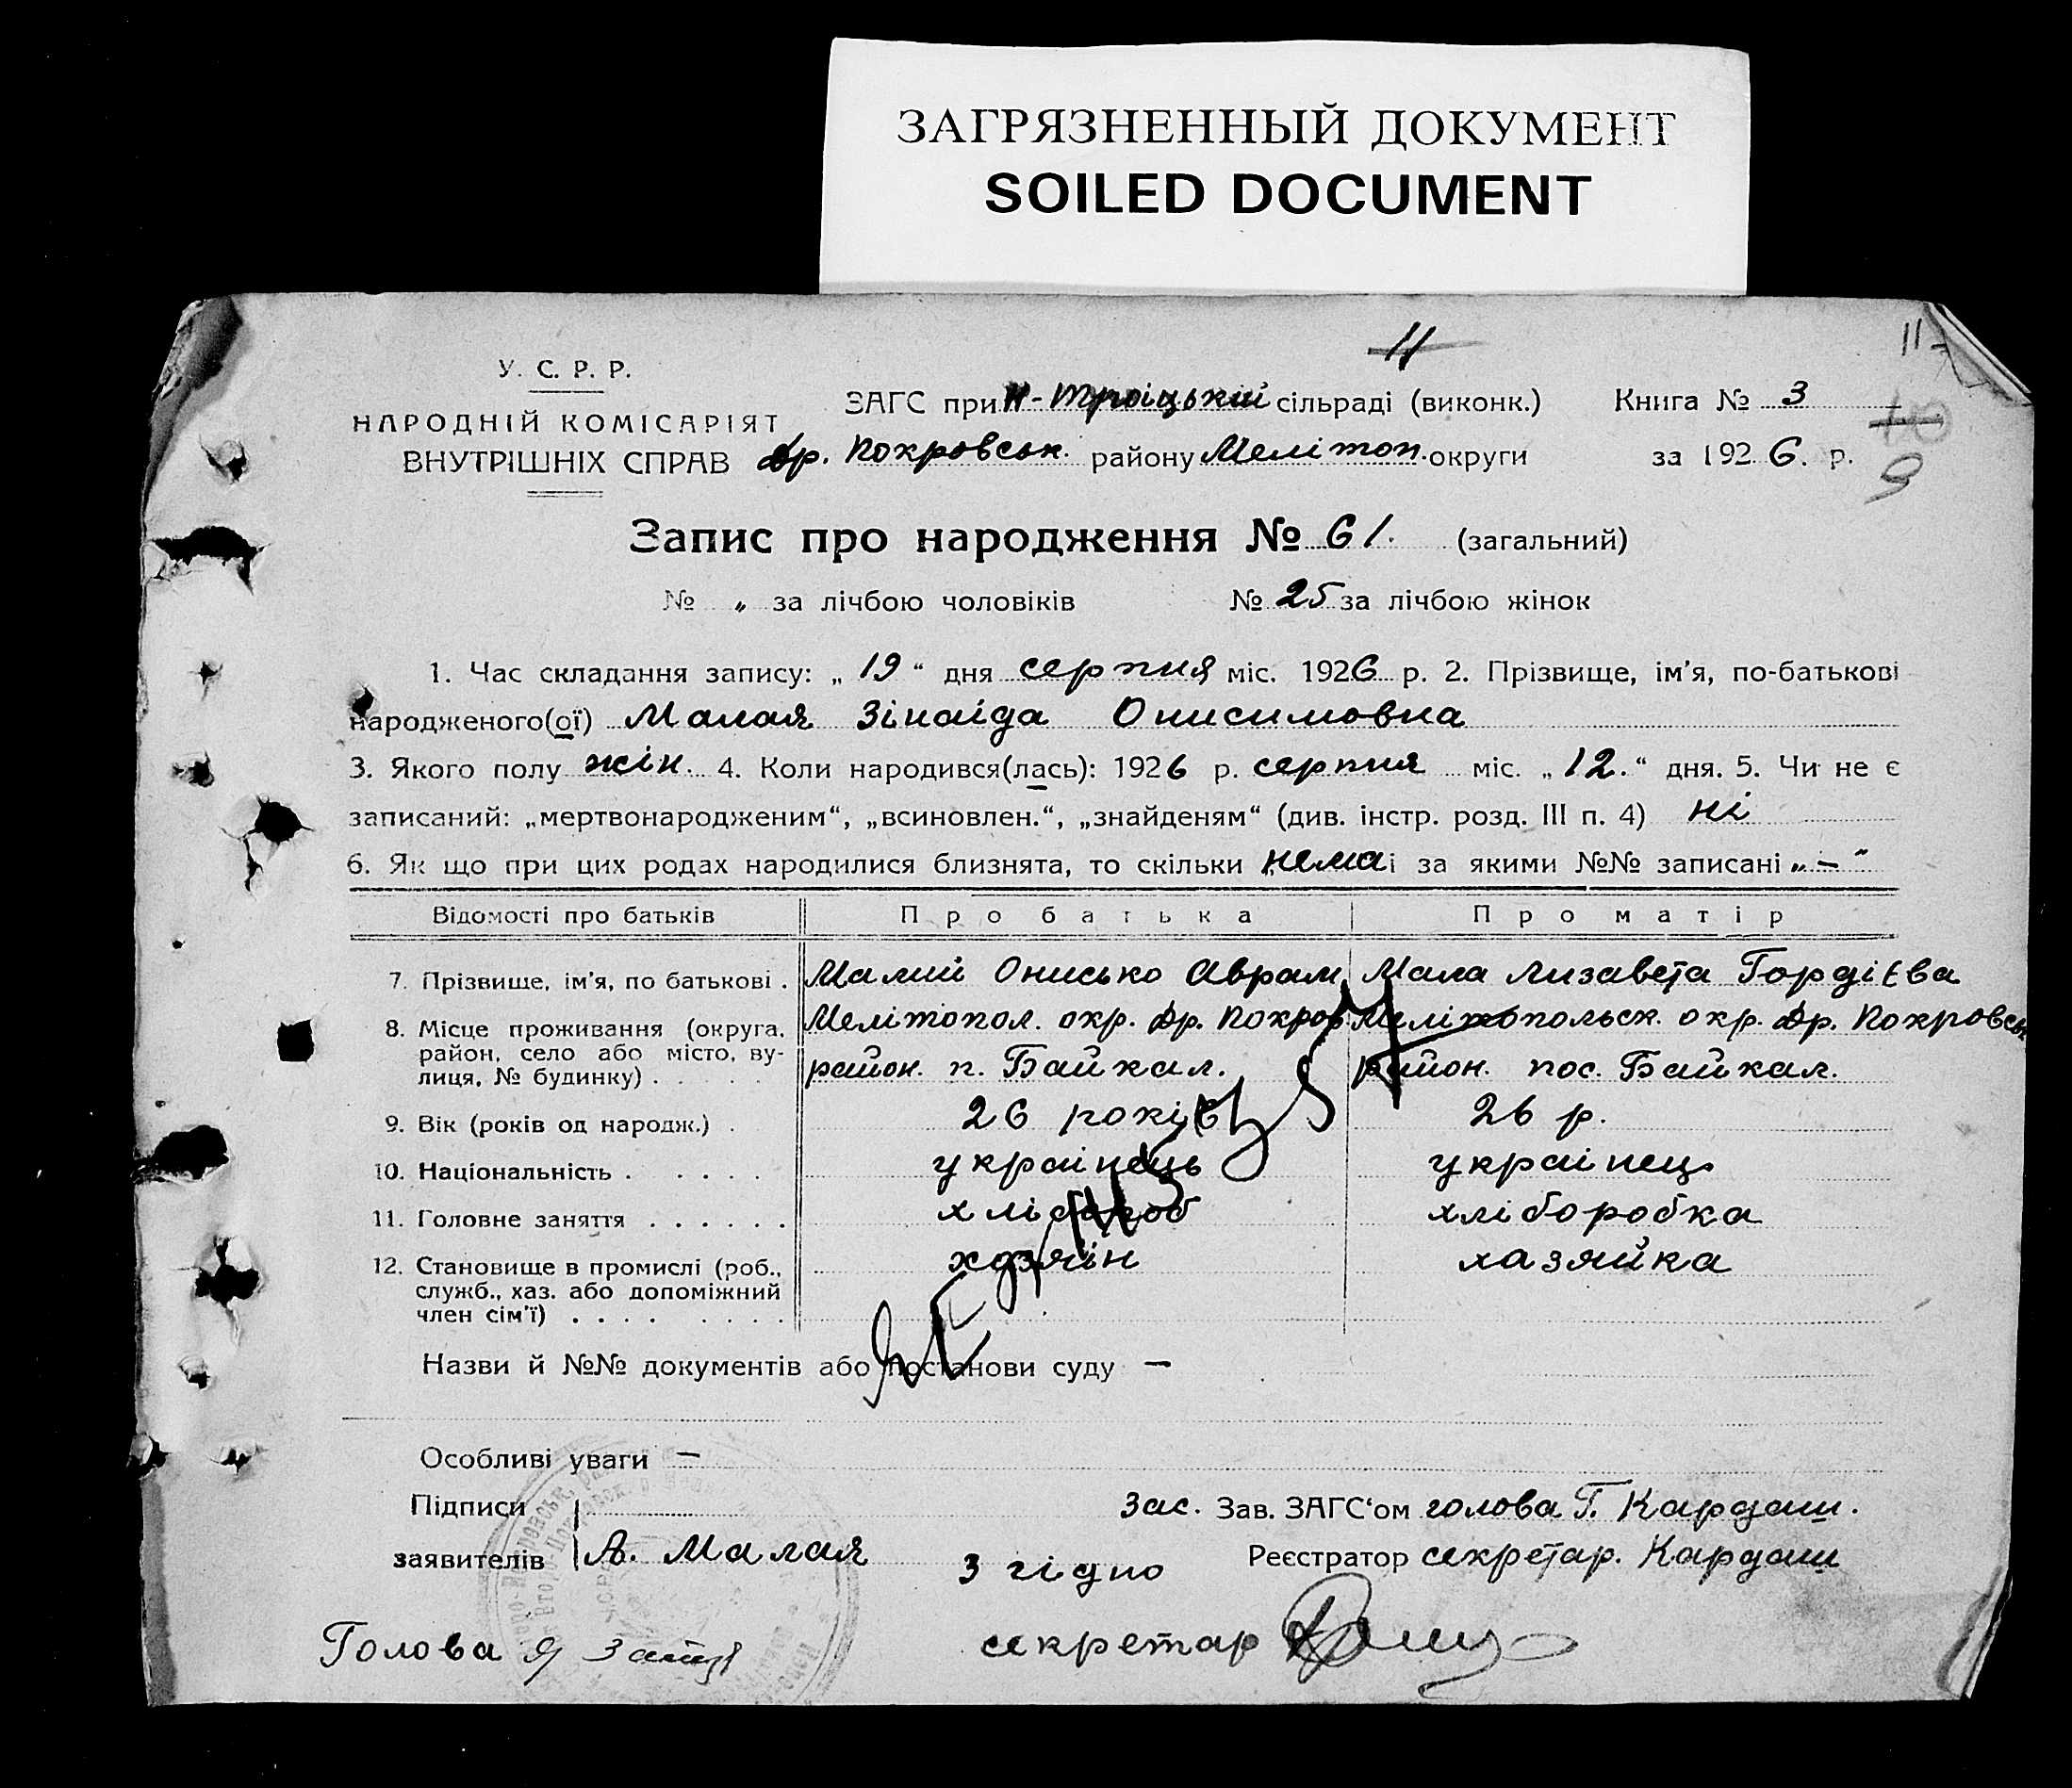 ЗАГРЯЗНЕННЫЙ ДОКУМЕНТ
SOILED DOCUMENT
11
11
У. С. Р. Р.
НАРОДНІЙ КОМІСАРІЯТ
ВНУТРІШНІХ СПРАВ
ЗАГС при Н-Троіцькій сільраді (виконк.) Книга № 3
др. Покровськ. району Мелітоп. округи за 1926. р.
9
Запис про народження № 61. (загальний)
№ „ за лічбою чоловіків № 25 за лічбою жінок
1. Час складання запису: „ 19 “ дня серпня міс. 1926 р. 2. Прізвище, ім'я, по-батькові
народженого(ої) Малая Зінаіда Онисимовна
3. Якого полу жін. 4. Коли народився(лась): 1926 р. серпня міс. „12.“ дня. 5. Чи не є
записаний: „мертвонародженим“, „всиновлен.“, „знайденям“ (див. інстр. розд. III п. 4) ні
6. Як що при цих родах народилися близнята, то скільки нема і за якими №№ записані „–“
Відомості про батьків Про батька Про матір
7. Прізвище, ім'я, по батькові . Малий Онисько Аврам Мала Лизавета Гордієва
8. Місце проживання (округа, район, село або місто, вулиця, № будинку) . Мелітопол. окр. др. Покров. Мелітопольск. окр. др. Покровськ
район. п. Байкал. район. пос. Байкал.
9. Вік (років од народж.) . 26 років 26 р.
10. Національність . украінець украінець
11. Головне заняття . хлібороб хліборобка
12. Становище в промислі (роб., служб., хаз. або допоміжний член сім'ї) . хозяін хазяйка
Назви й №№ документів або постанови суду –
Особливі уваги –
Підписи Зас. Зав. ЗАГС‘ом голова Г. Кардаш.
заявителів А. Малая Реєстратор секретар. Кардаш
З гідно
Голова секретар